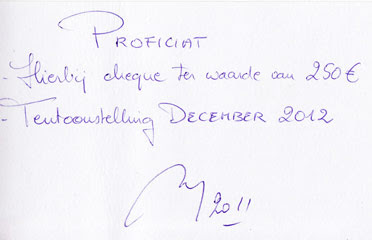 PROFICIAT
- Hierbij cheque ter waarde van 250 €
- Tentoonstelling DECEMBER 2012
2011